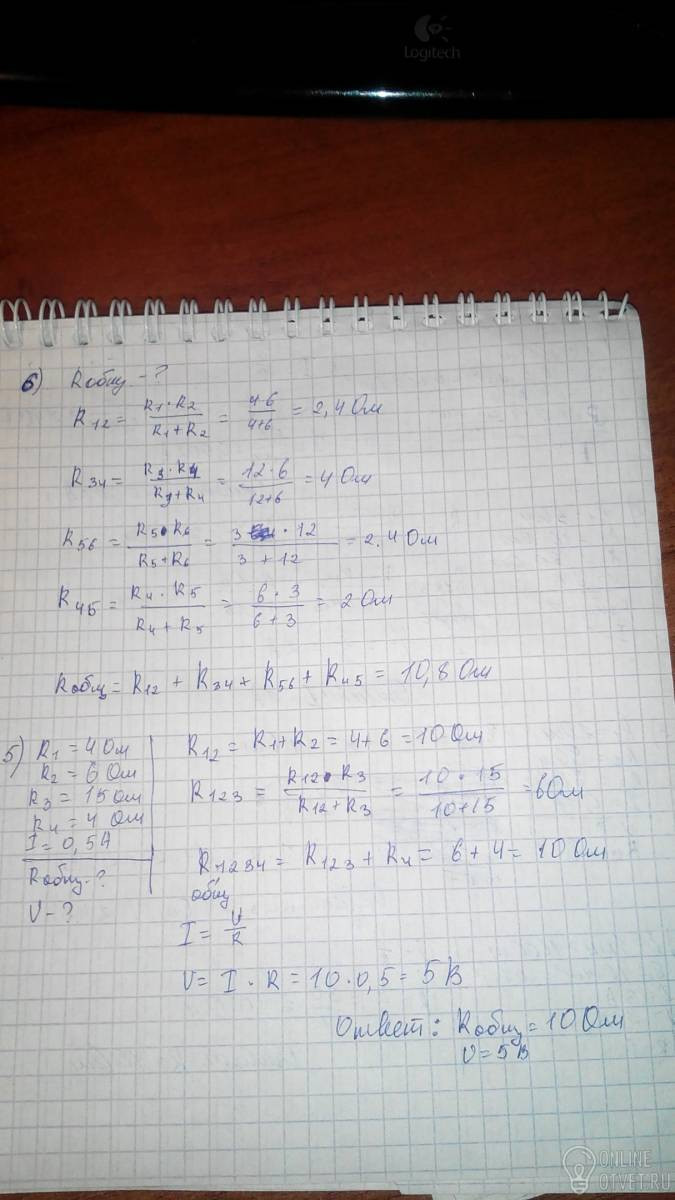 Logitech
6) Rобщ - ?
R12 = R1·R2 / R1+R2 = 4·6 / 4+6 = 2,4 Ом
R34 = R3·R4 / R3+R4 = 12·6 / 12+6 = 4 Ом
R56 = R5·R6 / R5+R6 = 3 · 12 / 3 + 12 = 2.4 Ом
R45 = R4·R5 / R4+R5 = 6·3 / 6+3 = 2 Ом
Rобщ = R12 + R34 + R56 + R45 = 10,8 Ом
5) R1 = 4 Ом
R2 = 6 Ом
R3 = 15 Ом
R4 = 4 Ом
I = 0,5А
Rобщ - ?
V - ?
R12 = R1 + R2 = 4+6 = 10 Ом
R123 = R12·R3 / R12+R3 = 10·15 / 10+15 = 6Ом
R1234 = R123 + R4 = 6 + 4 = 10 Ом
общ
I = U / R
V = I · R = 10·0,5 = 5 В
Ответ: Rобщ = 10 Ом
V = 5 В
ONLINE
OTVET.RU